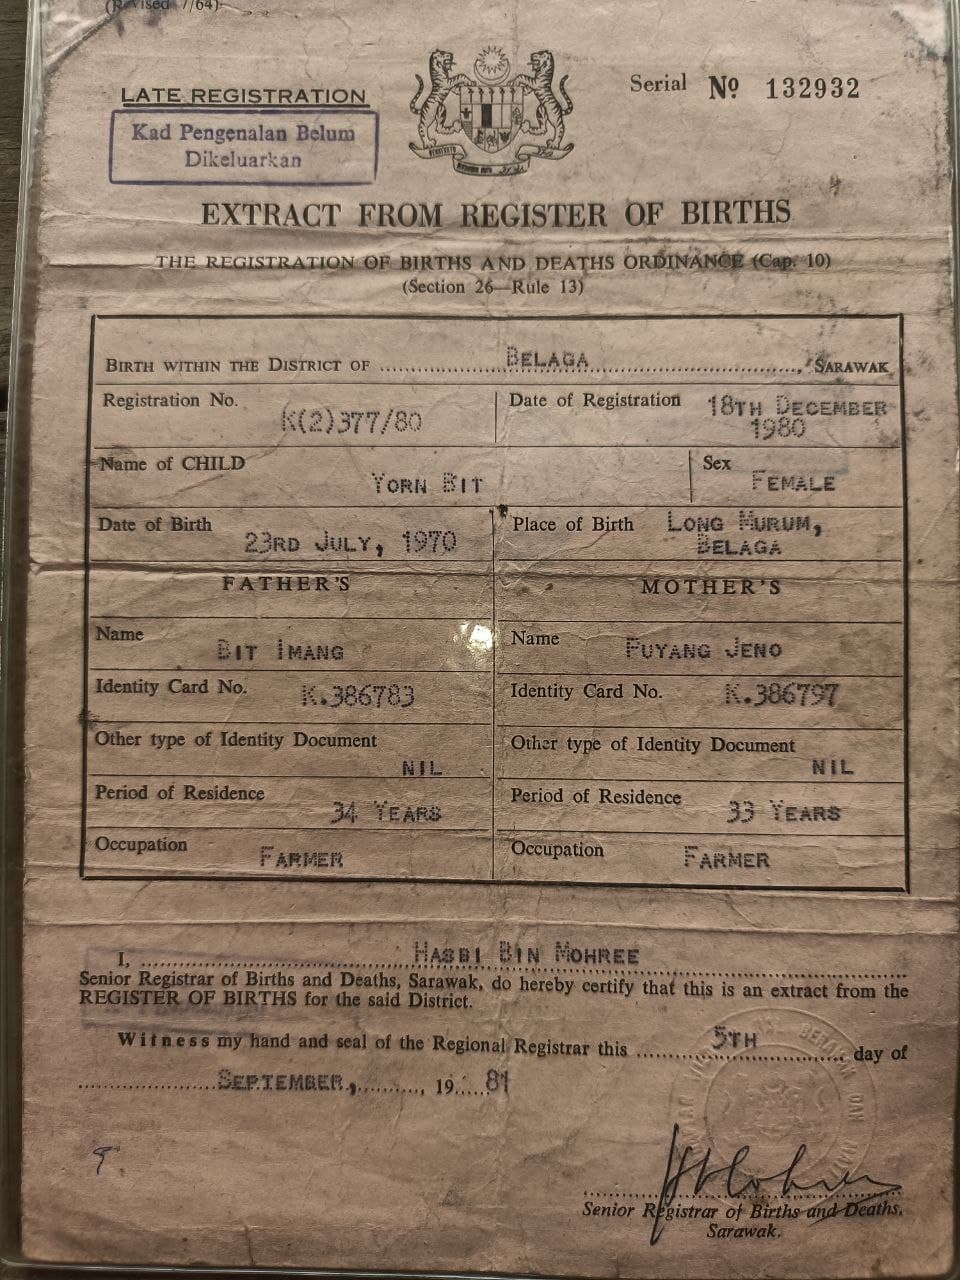 (Revised 7/64)
LATE REGISTRATION
Kad Pengenalan Belum
Dikeluarkan
Serial No 132932
EXTRACT FROM REGISTER OF BIRTHS
THE REGISTRATION OF BIRTHS AND DEATHS ORDINANCE (Cap. 10)
(Section 26—Rule 13)
BIRTH WITHIN THE DISTRICT OF BELAGA, SARAWAK
Registration No. K(2)377/80
Date of Registration 18TH DECEMBER
1980
Name of CHILD YORN BIT
Sex FEMALE
Date of Birth 23RD JULY, 1970
Place of Birth LONG MURUM,
BELAGA
FATHER'S
MOTHER'S
Name BIT IMANG
Name PUYANG JENO
Identity Card No. K.386783
Identity Card No. K.386797
Other type of Identity Document
NIL
Other type of Identity Document
NIL
Period of Residence 34 YEARS
Period of Residence 33 YEARS
Occupation FARMER
Occupation FARMER
I, HASBI BIN MOHREE
Senior Registrar of Births and Deaths, Sarawak, do hereby certify that this is an extract from the
REGISTER OF BIRTHS for the said District.
Witness my hand and seal of the Regional Registrar this 5TH day of
SEPTEMBER, 1981
Senior Registrar of Births and Deaths,
Sarawak.